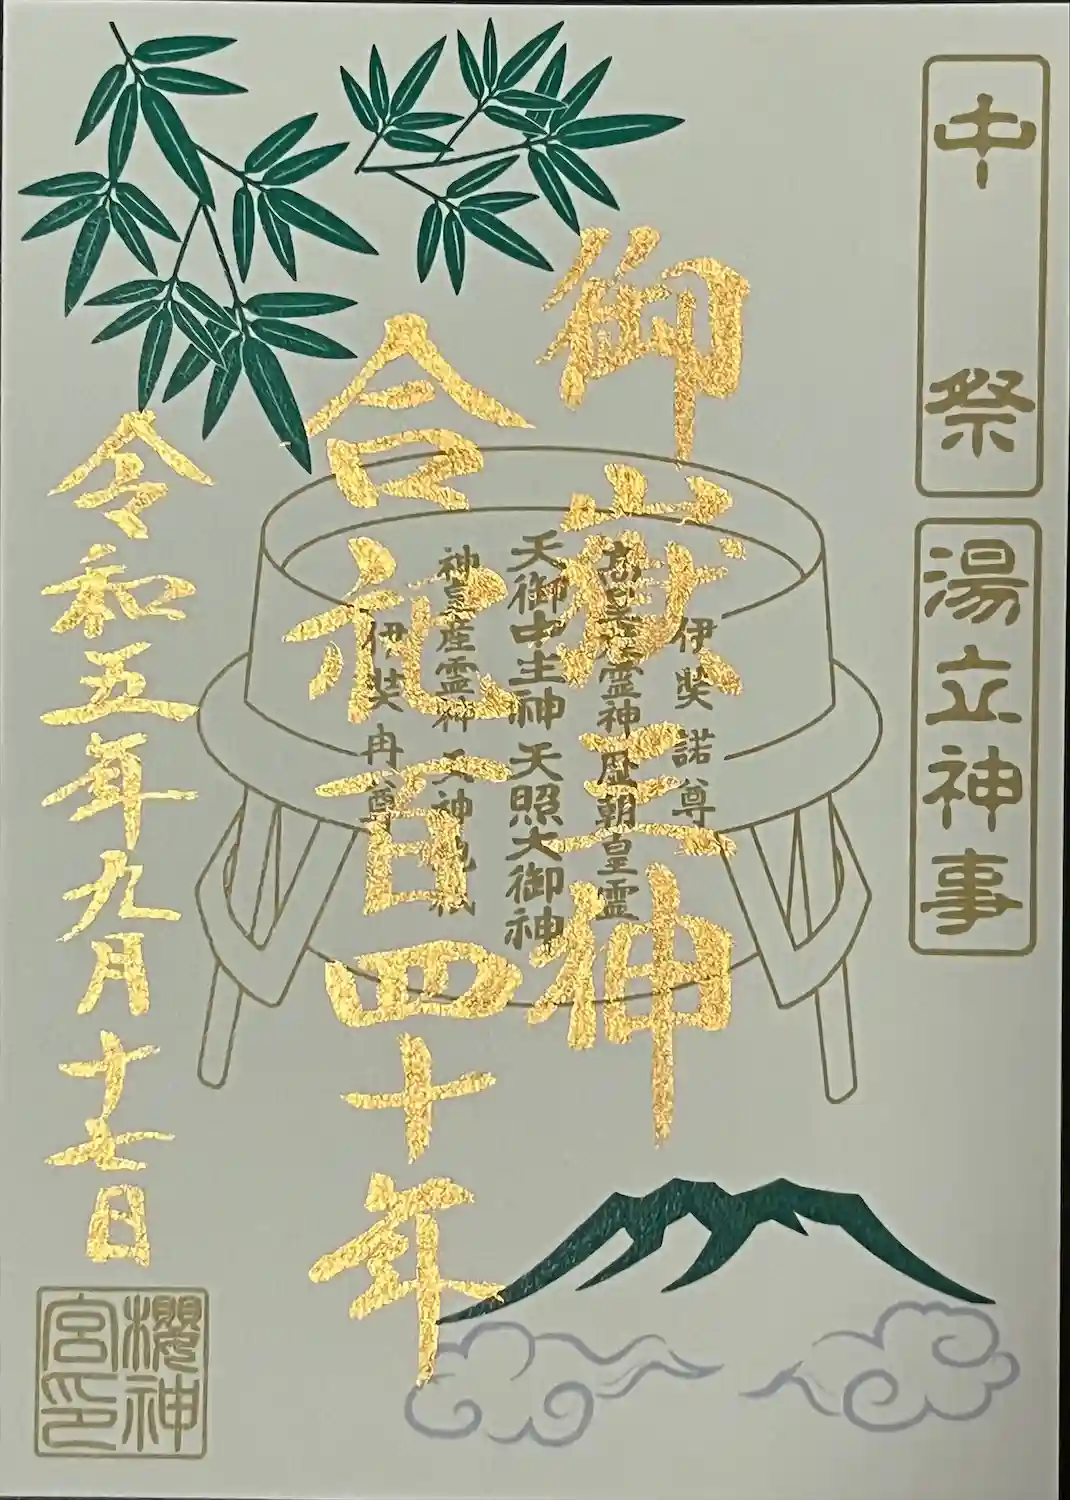 中祭
湯立神事
御嶽三神
合祀百四十年
伊奘諾尊
高皇産霊神 歴朝皇霊
天御中主神 天照大御神
神皇産霊神 天神地祇
伊奘冉尊
令和五年九月十七日
櫻神
宮印